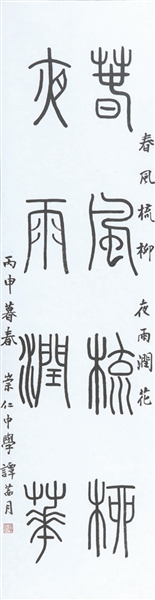 春風梳柳 夜雨潤花
萅風梳柳
夜雨潤華
丙申暮春 崇仁中學譚月